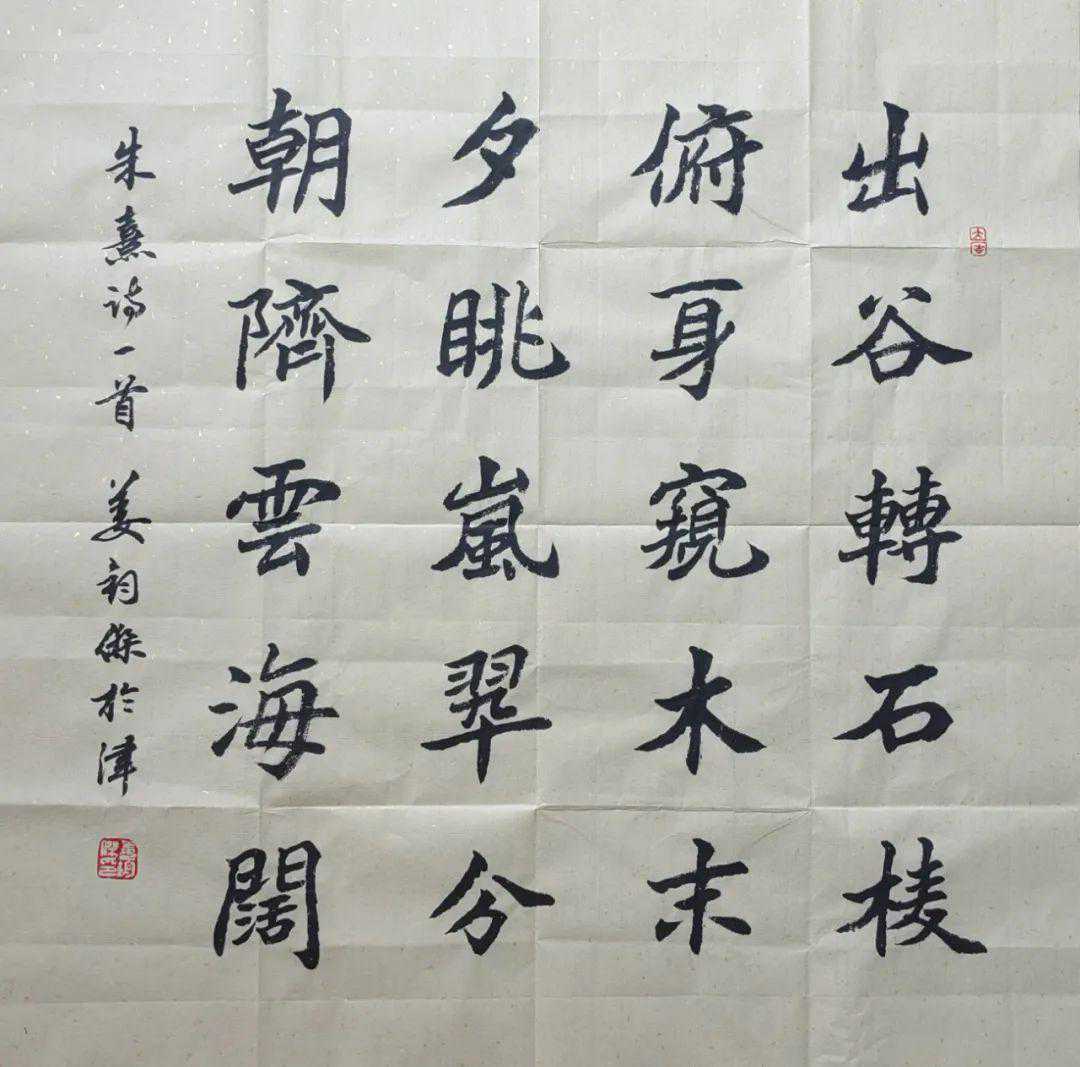 出谷轉石棱
俯身窺木末
夕眺嵐翠分
朝隮雲海闊
朱熹詩一首 姜韵傑於津
大吉